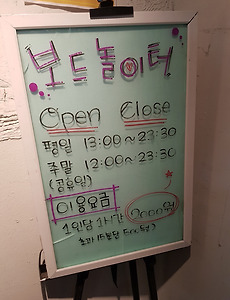 보드놀이터
Open Close
평일 13:00~23:30
주말 12:00~23:30
(공휴일)
이용요금
1인당 1시간 9000원